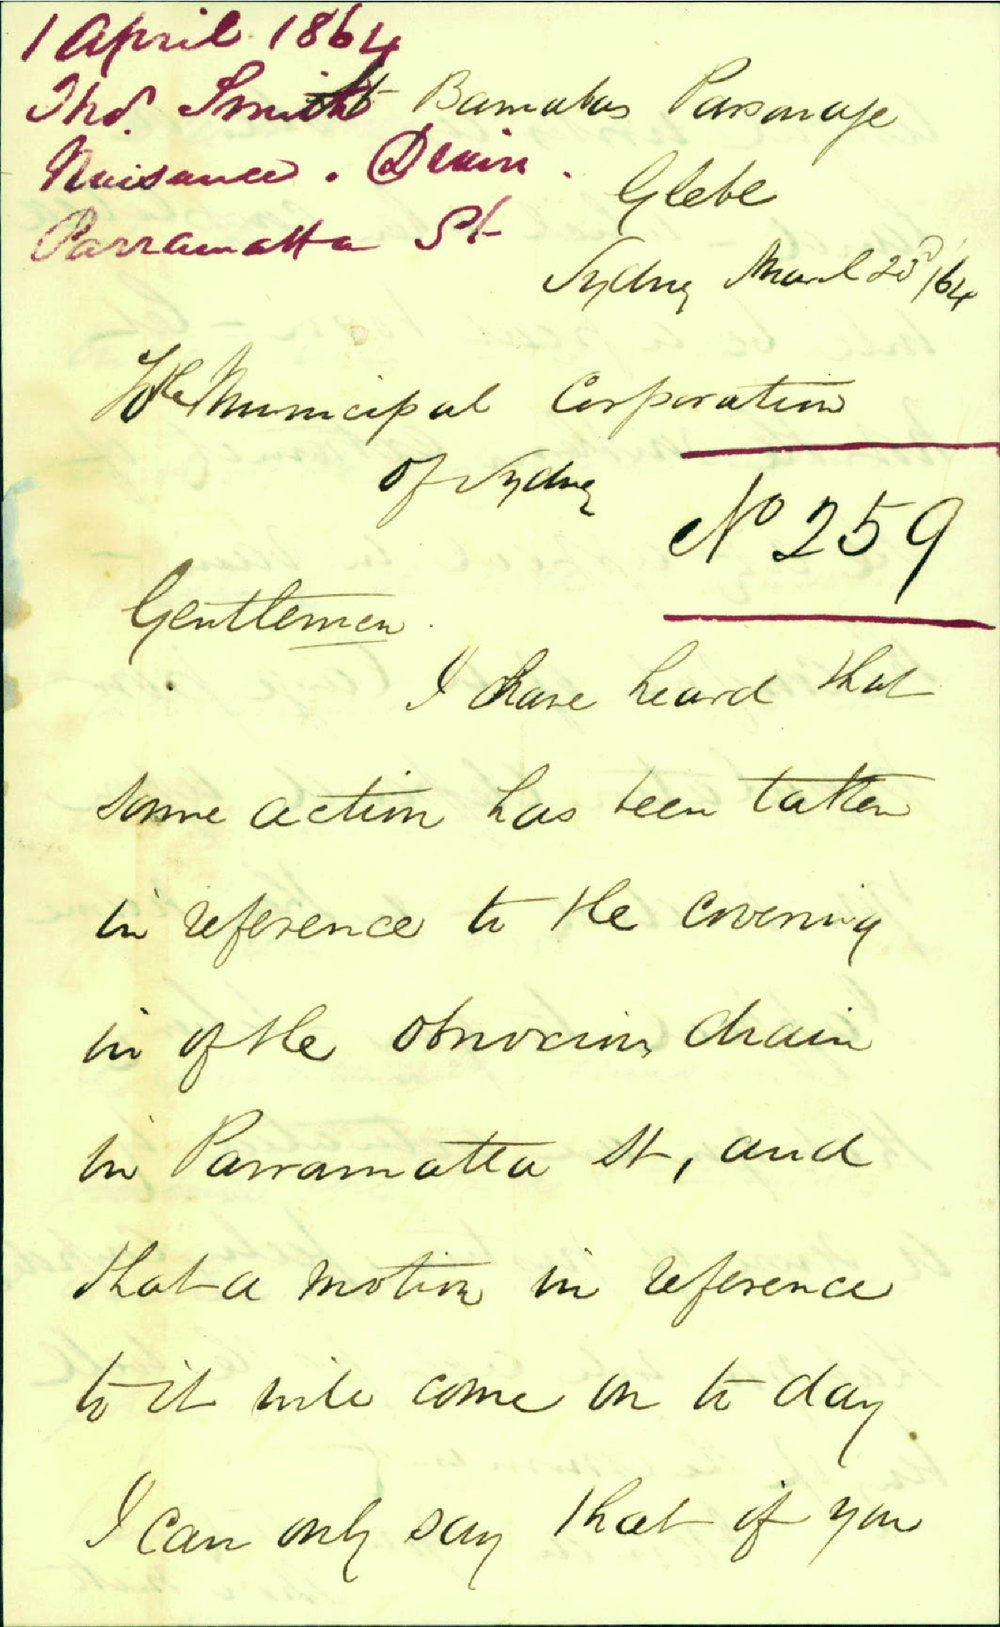 1 April 1864
Thos. Smith
Nuisance. Drain.
Parramatta St
St Barnabas Parsonage
Glebe
Sydney March 23d/64
To the Municipal Corporation
of Sydney
No 259
Gentlemen
I have heard that
some action has been taken
in reference to the covering
in of the obnoxious drain
in Parramatta St, and
that a motion in reference
to it will come on to day.
I can only say that if you